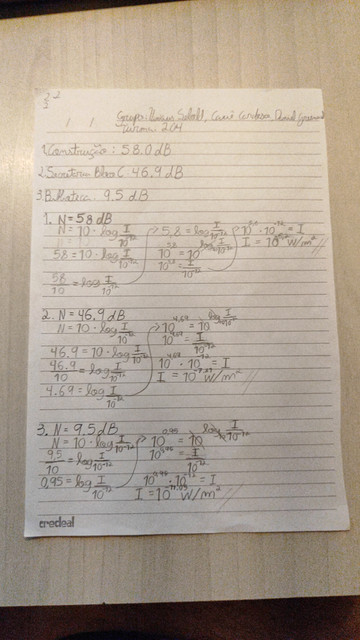 Turma: 204
1. Construção: 58.0 dB
2. Secretaria Bloco C: 46.9 dB
3. Biblioteca: 9.5 dB
1. N = 58 dB
N = 10 · log I/10^-12
58 = 10 · log I/10^-12
58/10 = log I/10^-12
5,8 = log I/10^-12
10^5,8 = 10^log I/10^-12
10^5,8 = I/10^-12
10^5,8 · 10^-12 = I
I = 10^-6,2 W/m²
2. N = 46,9 dB
N = 10 · log I/10^-12
46.9 = 10 · log I/10^-12
46.9/10 = log I/10^-12
4.69 = log I/10^-12
10^4.69 = 10^log I/10^-12
10^4.69 = I/10^-12
10^4.69 · 10^-12 = I
I = 10^-7.31 W/m²
3. N = 9.5 dB
N = 10 · log I/10^-12
9.5/10 = log I/10^-12
0,95 = log I/10^-12
10^0,95 = 10^log I/10^-12
10^0,95 = I/10^-12
10^0,95 · 10^-12 = I
I = 10^-11,05 W/m²
credeal